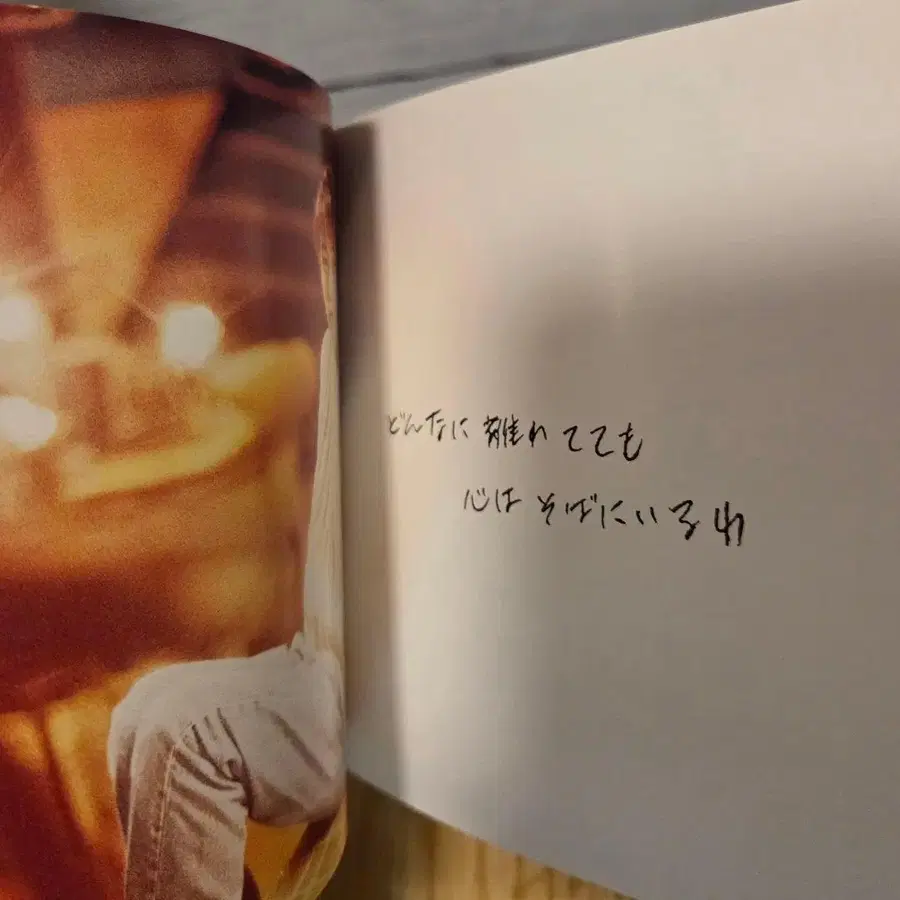 どんなに離れてても
心はそばにいるわ